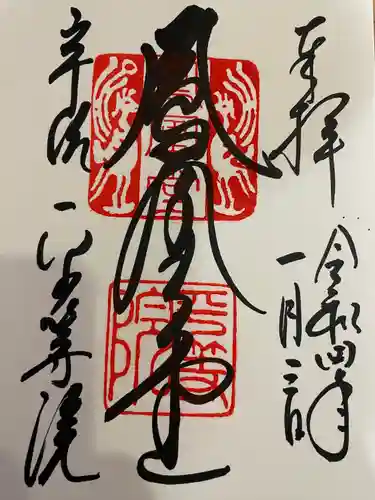 奉拝
令和四年
一月三日
鳳凰堂
宇治 平等院
平等院